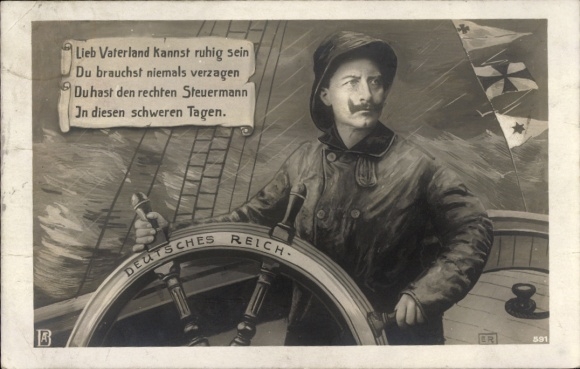 Lieb Vaterland kannst ruhig sein
Du brauchst niemals verzagen
Du hast den rechten Steuermann
In diesen schweren Tagen.
DEUTSCHES REICH.
591